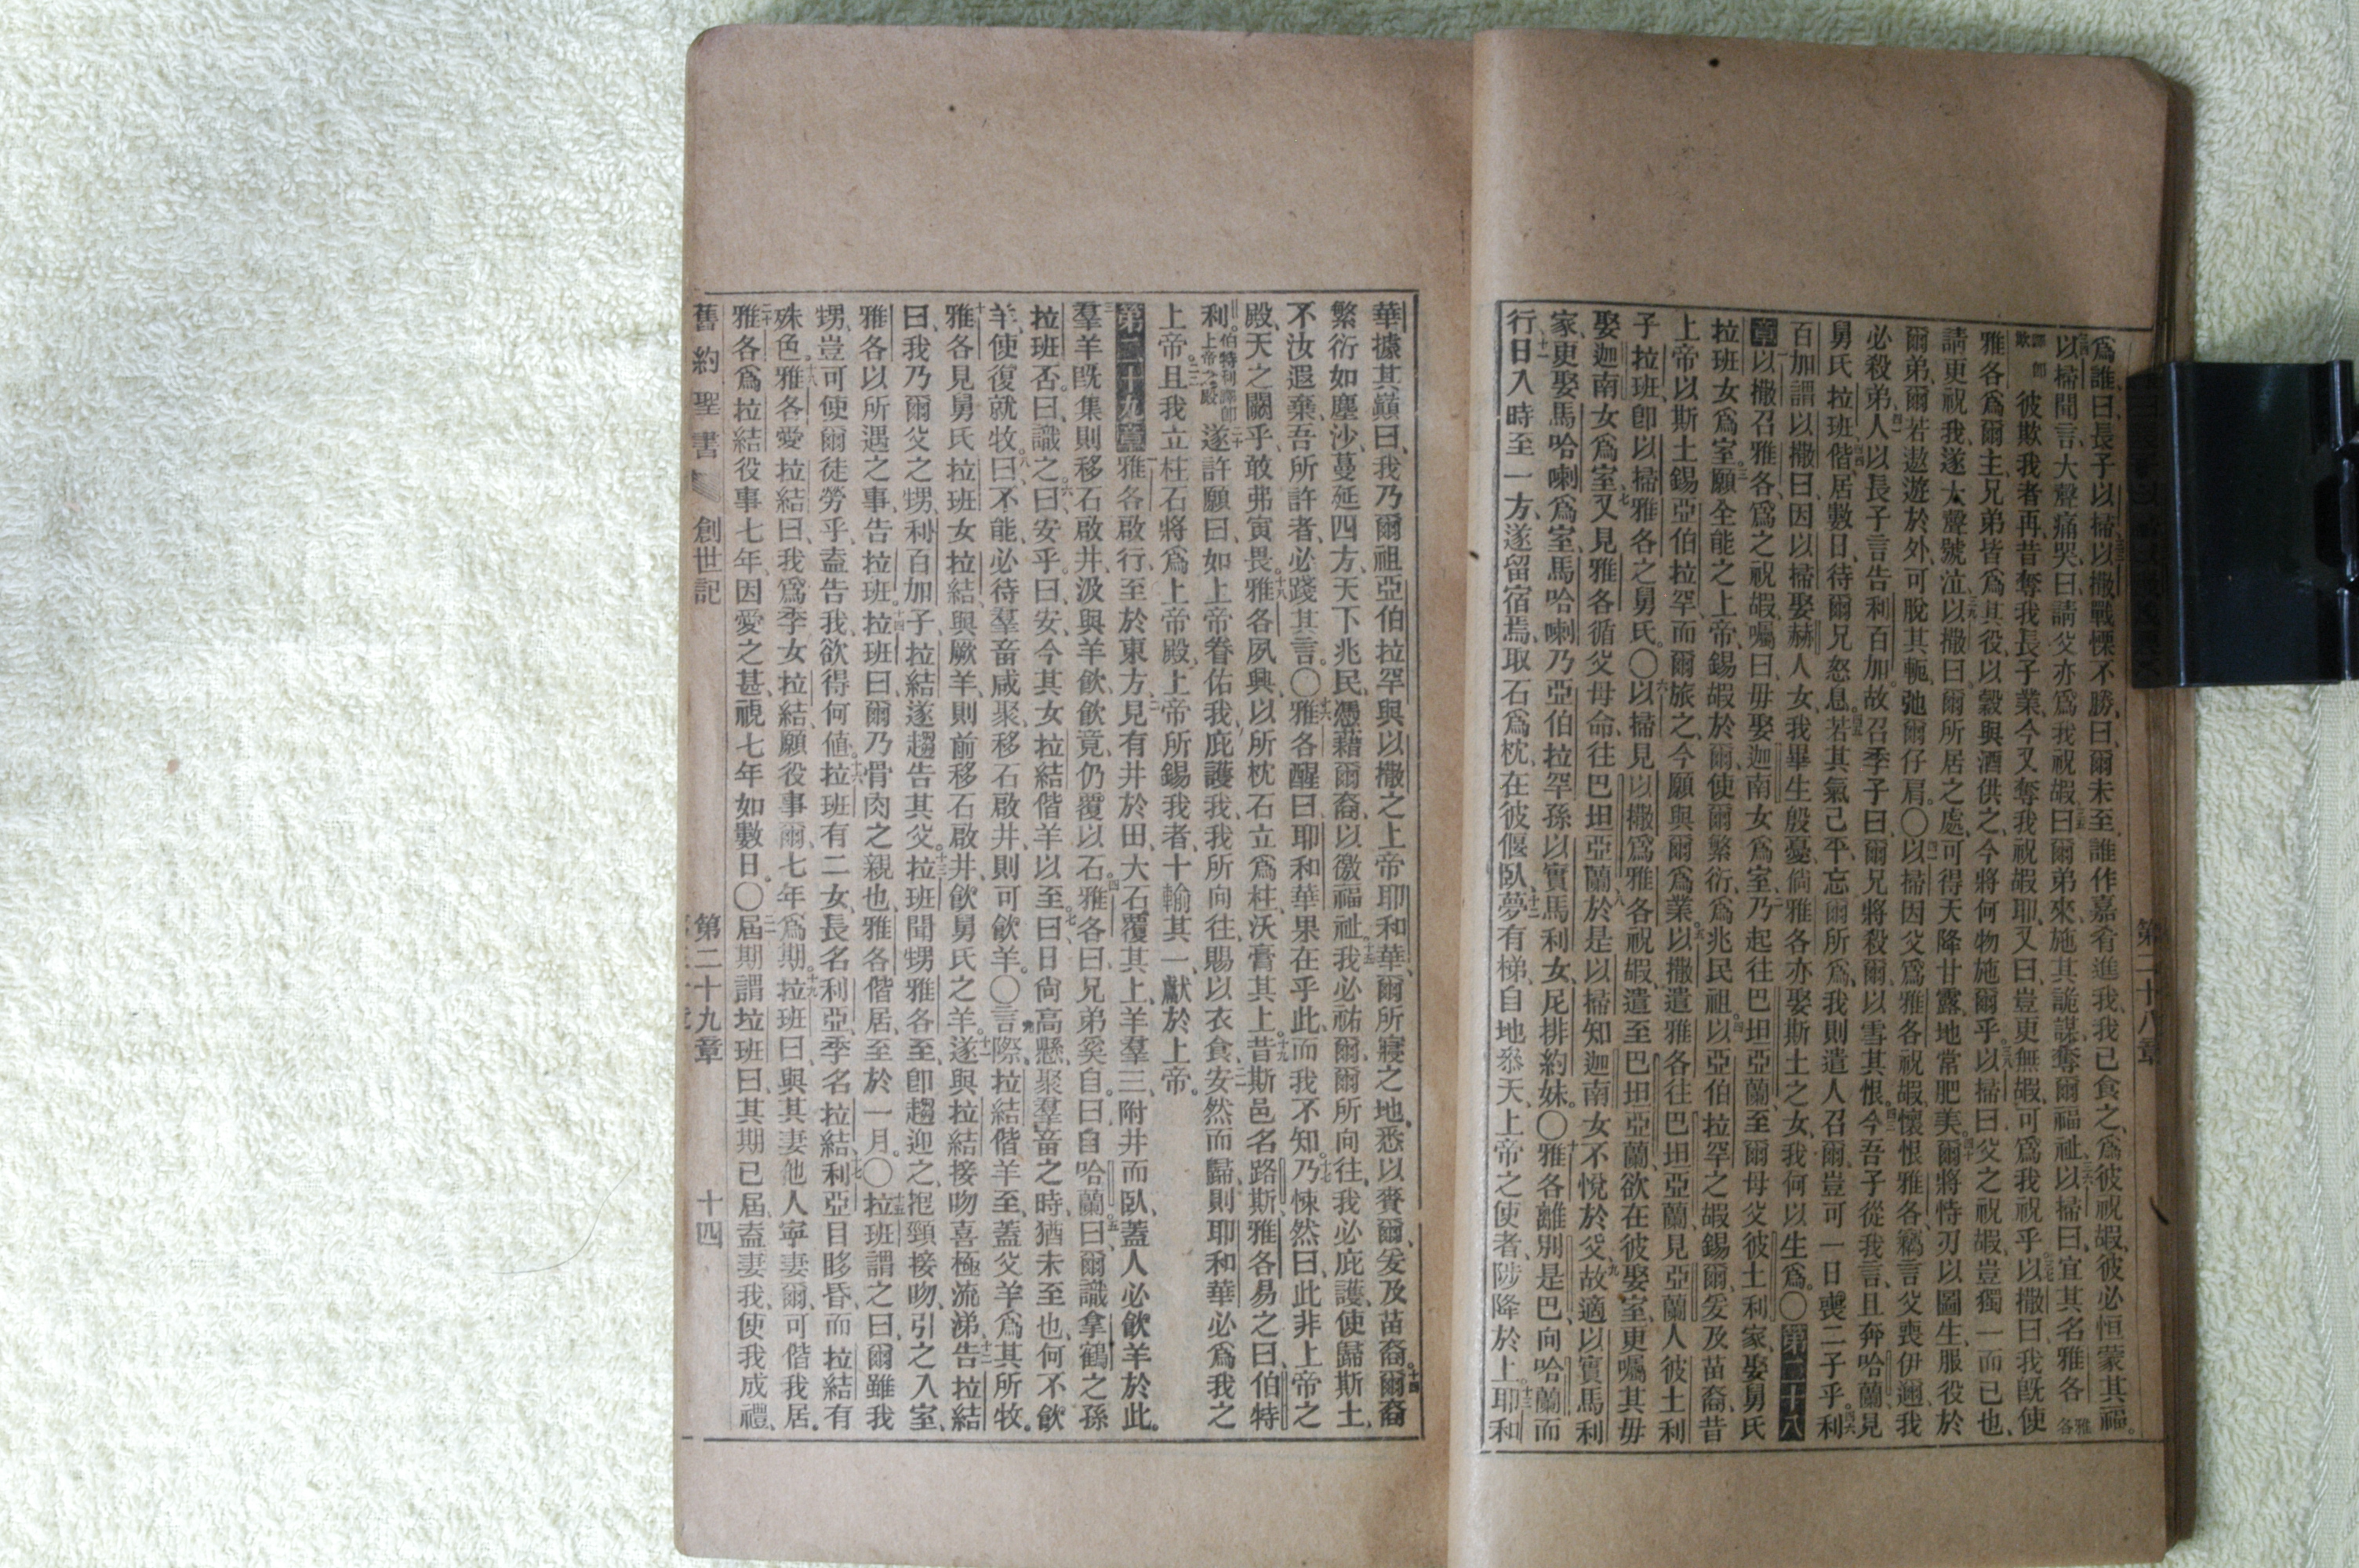 為誰、曰、長子以掃、以撒戰慄不勝、曰、爾未至、誰作嘉肴進我、我已食之、為彼祝嘏、彼必恒蒙其福。
以掃聞言、大聲痛哭、曰、請父亦為我祝嘏、曰、爾弟來、施其詭謀、奪爾福祉、以掃曰、宜其名雅各 雅各
譯即欺 彼欺我者再、昔奪我長子業、今又奪我祝嘏耶、又曰、豈更無嘏、可為我祝乎。以撒曰、我既使
雅各為爾主、兄弟皆為其役、以穀與酒供之、今將何物施爾乎。以掃曰、父之祝嘏、豈獨一而已也、
請更祝我、遂大聲號泣、以撒曰、爾所居之處、可得天降甘露、地常肥美。爾將恃刃以圖生、服役於
爾弟、爾若遨遊於外、可脫其軛、弛爾仔肩。〇以掃因父為雅各祝嘏、懷恨雅各、竊言父喪伊邇、我
必殺弟、人以長子言告利百加、故召季子曰、爾兄將殺爾、以雪其恨。今吾子從我言、且奔哈蘭、見
舅氏拉班、偕居數日、待爾兄怒息、若其氣已平、忘爾所為、我則遣人召爾、豈可一日喪二子乎。利
百加謂以撒曰、因以掃娶赫人女、我畢生殷憂、倘雅各亦娶斯土之女、我何以生為。〇第二十八
章 以撒召雅各、為之祝嘏、囑曰、毋娶迦南女為室、乃起往巴坦亞蘭、至爾母父彼土利家、娶舅氏
拉班女為室。願全能之上帝、錫嘏於爾、使爾繁衍、為兆民祖。以亞伯拉罕之嘏錫爾、爰及苗裔、昔
上帝以斯土錫亞伯拉罕、而爾旅之、今願與爾為業。以撒遣雅各往巴坦亞蘭、見亞蘭人彼土利
子拉班、即以掃雅各之舅氏。〇以掃見以撒為雅各祝嘏、遣至巴坦亞蘭、欲在彼娶室、更囑其毋
娶迦南女為室、又見雅各循父母命、往巴坦亞蘭、於是以掃知迦南女不悅於父、故適以實馬利
家、更娶馬哈喇為室、馬哈喇乃亞伯拉罕孫、以實馬利女、尼排約妹。〇雅各離別是巴、向哈蘭而
行、日入時至一方、遂留宿焉、取石為枕、在彼偃臥、夢有梯、自地參天、上帝之使者、陟降於上。耶和
華據其巔曰、我乃爾祖亞伯拉罕與以撒之上帝耶和華、爾所寢之地、悉以賚爾、爰及苗裔。爾裔
繁衍如塵沙、蔓延四方、天下兆民、憑藉爾裔、以徼福祉。我必祐爾、爾所向往、我必庇護、使歸斯土、
不汝遐棄、吾所許者、必踐其言。〇雅各醒曰、耶和華果在乎此、而我不知。乃悚然曰、此非上帝之
殿、天之闕乎、敢弗寅畏。雅各夙興、以所枕石立為柱、沃膏其上。昔斯邑名路斯、雅各易之曰、伯特
利。伯特利譯即上帝之殿 遂許願曰、如上帝眷佑我、庇護我、我所向往、賜以衣食、安然而歸、則耶和華必為我之
上帝。且我立柱石、將為上帝殿、上帝所錫我者、十輸其一、獻於上帝。
第二十九章 雅各啟行、至於東方、見有井於田、大石覆其上、羊羣三、附井而臥、蓋人必飲羊於此。
羣羊既集、則移石啟井、汲與羊飲、飲竟、仍覆以石。雅各曰、兄弟奚自。曰、自哈蘭。曰、爾識拿鶴之孫
拉班否。曰、識之。曰、安乎。曰、安、今其女拉結偕羊以至。曰、日尚高懸、聚羣畜之時、猶未至也、何不飲
羊、使復就牧。曰、不能、必待羣畜咸聚、移石啟井、則可飲羊。〇言際、拉結偕羊至、蓋父羊為其所牧。
雅各見舅氏拉班女拉結、與厥羊、則前移石啟井、飲舅氏之羊。遂與拉結接吻、喜極流涕、告拉結
曰、我乃爾父之甥、利百加子、拉結遂趨告其父。拉班聞甥雅各至、即趨迎之、抱頸接吻、引之入室、
雅各以所遇之事、告拉班。拉班曰、爾乃骨肉之親也、雅各偕居、至於一月。〇拉班謂之曰、爾雖我
甥、豈可使爾徒勞乎、盍告我、欲得何値。拉班有二女、長名利亞、季名拉結、利亞目眵昏、而拉結有
殊色。雅各愛拉結曰、我為季女拉結、願役事爾、七年為期。拉班曰、與其妻他人、寧妻爾、可偕我居。
雅各為拉結役事七年、因愛之甚、視七年如數日。〇屆期謂拉班曰、其期已屆、盍妻我、使我成禮、
舊約聖書 創世記 第二十九章 十四
第二十八章